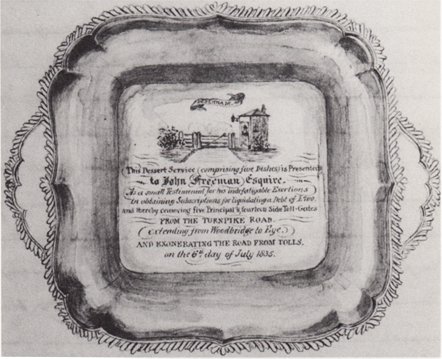 This Dessert Service (comprising five Dishes) is Presented
to John Freeman Esquire.
As a small Testimonial for his indefatigable Exertions
in obtaining Subscriptions for liquidating a Debt of
and thereby removing five Principal & fourteen Side Toll-Gates
FROM THE TURNPIKE ROAD
(extending from Woodbridge to Eye,)
AND EXONERATING THE ROAD FROM TOLLS,
on the 6th day of July 1835.